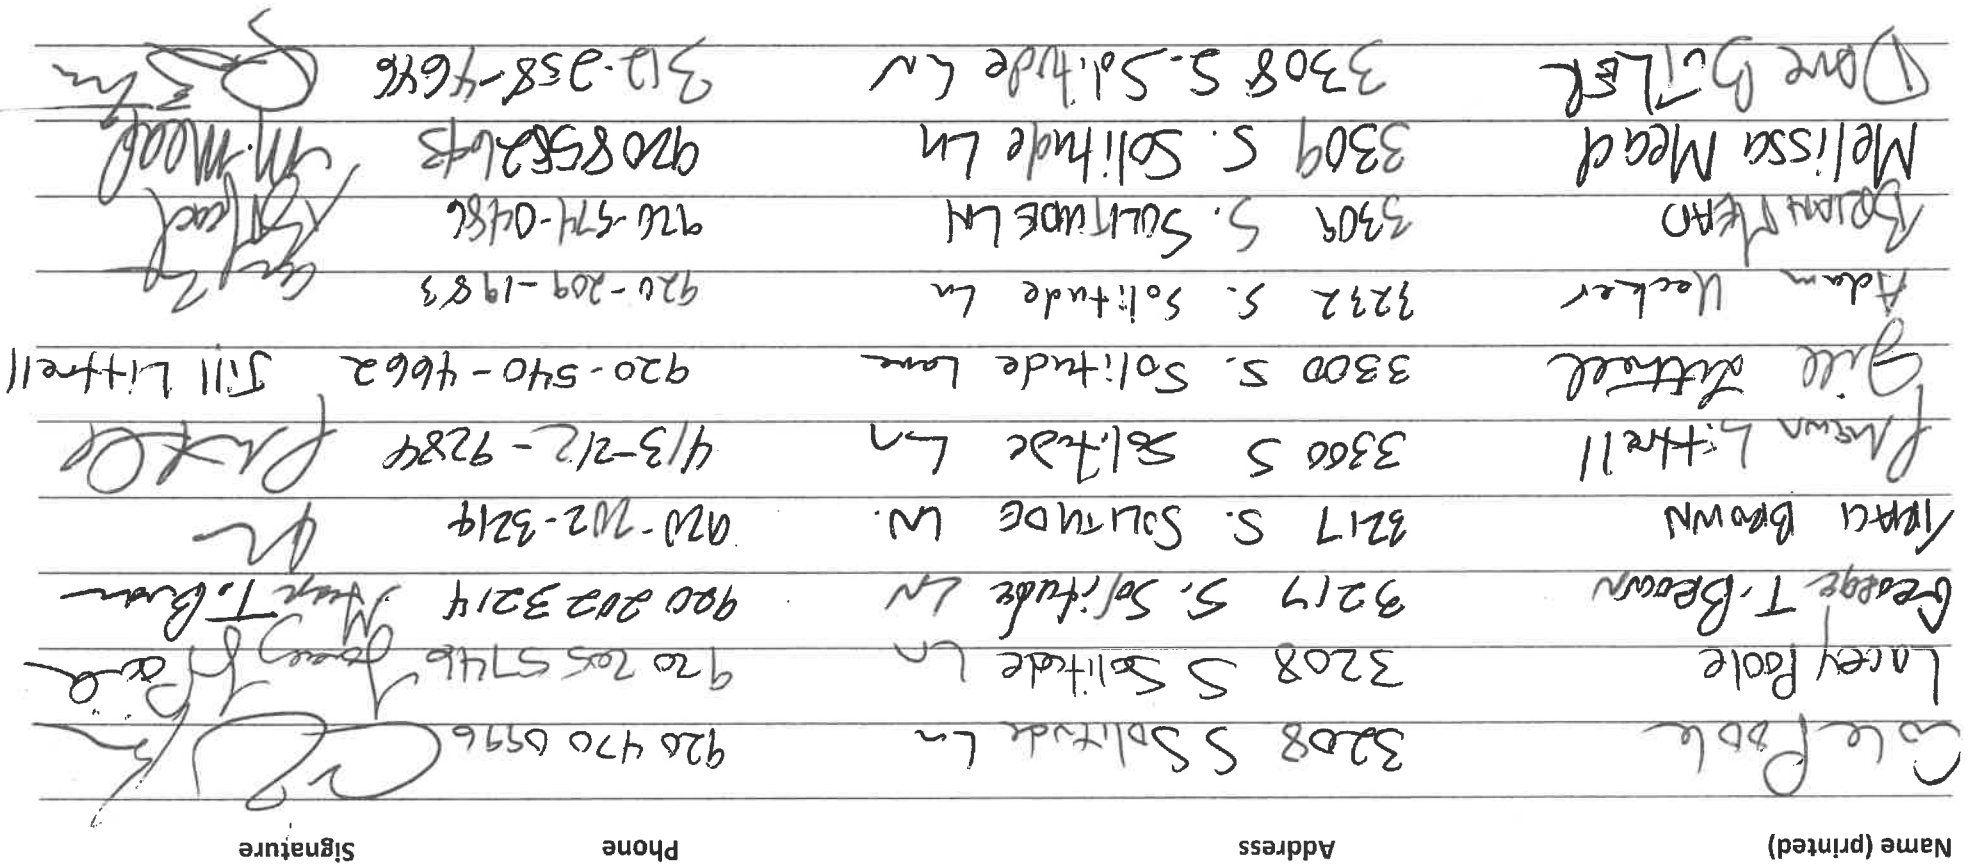 Name (printed) Address Phone Signature
Cole Poole 3208 S Solitude Ln 920 470 0596
Lacey Poole 3208 S Solitude Ln 920 205 5746 Lacey Poole
George T. Brown 3217 S. Solitude LN 920 202 3214 George T. Brown
TRACI BROWN 3217 S. SOLITUDE LN. 920-202-3214
Shawn Littrell 3300 S Solitude Ln 413-212-9284
Jill Littrell 3300 S. Solitude Lane 920-540-4662 Jill Littrell
Adam Uecker 3232 S. Solitude Ln 920-209-1983
BRIAN MEAD 3309 S. SOLITUDE LN 920-574-0486 B Mead
Melissa Mead 3309 S. Solitude Ln 920858 M. Mead
Dave BUTLER 3308 S. Solitude LN 312-258-4646